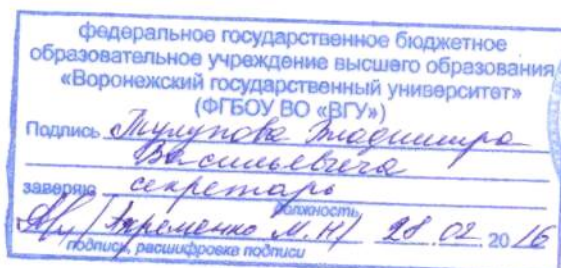 федеральное государственное бюджетное
образовательное учреждение высшего образования
«Воронежский государственный университет»
(ФГБОУ ВО «ВГУ»)
Подпись Тулупова Владимира
Васильевича
заверяю секретарь
должность
Акременко М.Н/ 28.02.2016
подпись, расшифровка подписи